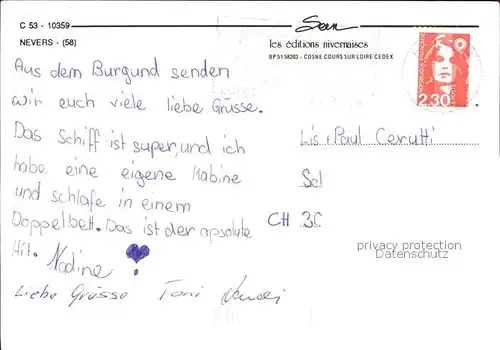 C 53 - 10359
NEVERS - (58)
les éditions nivernaises
BP 51 58203 - COSNE COURS SUR LOIRE CEDEX
2,30
Aus dem Burgund senden
wir euch viele liebe Grüsse.
Das Schiff ist super, und ich
habe eine eigene Kabine
und schlafe in einem
Doppelbett. Das ist der apsolute
Hit. Nadine
Liebe Grüsse Toni
Lis + Paul Cerutti
CH 30
privacy protection
Datenschutz